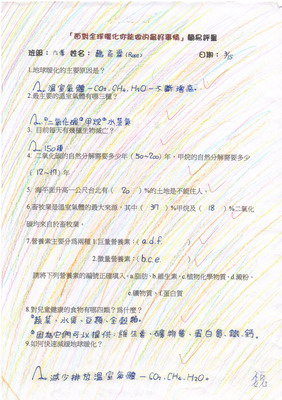 「面對全球暖化你能做的最好事情」簡易評量
班級：六孝 姓名： 日期：3/5
1.地球暖化的主要原因是？
溫室氣體－CO₂.CH₄.H₂O－不斷增高。
2.最主要的溫室氣體有哪三種？
①二氧化碳②甲烷③水蒸氣
3. 目前每天有幾種生物滅亡？
150種
4. 二氧化碳的自然分解需要多少年（50~200）年，甲烷的自然分解需要多少
（12~17）年
5. 海平面升高一公尺台北有（ 20 ）%的土地是不能住人。
6.畜牧業是溫室氣體的最大來源，其中（ 37 ）%甲烷及（ 18 ）%二氧化
碳均來自於畜牧業。
7.營養素主要分為兩種 1.巨量營養素：( a.d.f )
2.微量營養素：( b.c.e )
請將下列營養素的編號正確填入。a.脂肪、b.維生素、c.植物化學物質、d.澱粉、
e.礦物質、f.蛋白質
8.對兒童健康的食物有哪四類？為什麼？
蔬菜、水果、豆類、全穀類。
因為它們可以提供：維生素、礦物質、蛋白質、鐵、鈣。
9.如何快速減緩地球暖化？
減少排放溫室氣體－CO₂.CH₄.H₂O。